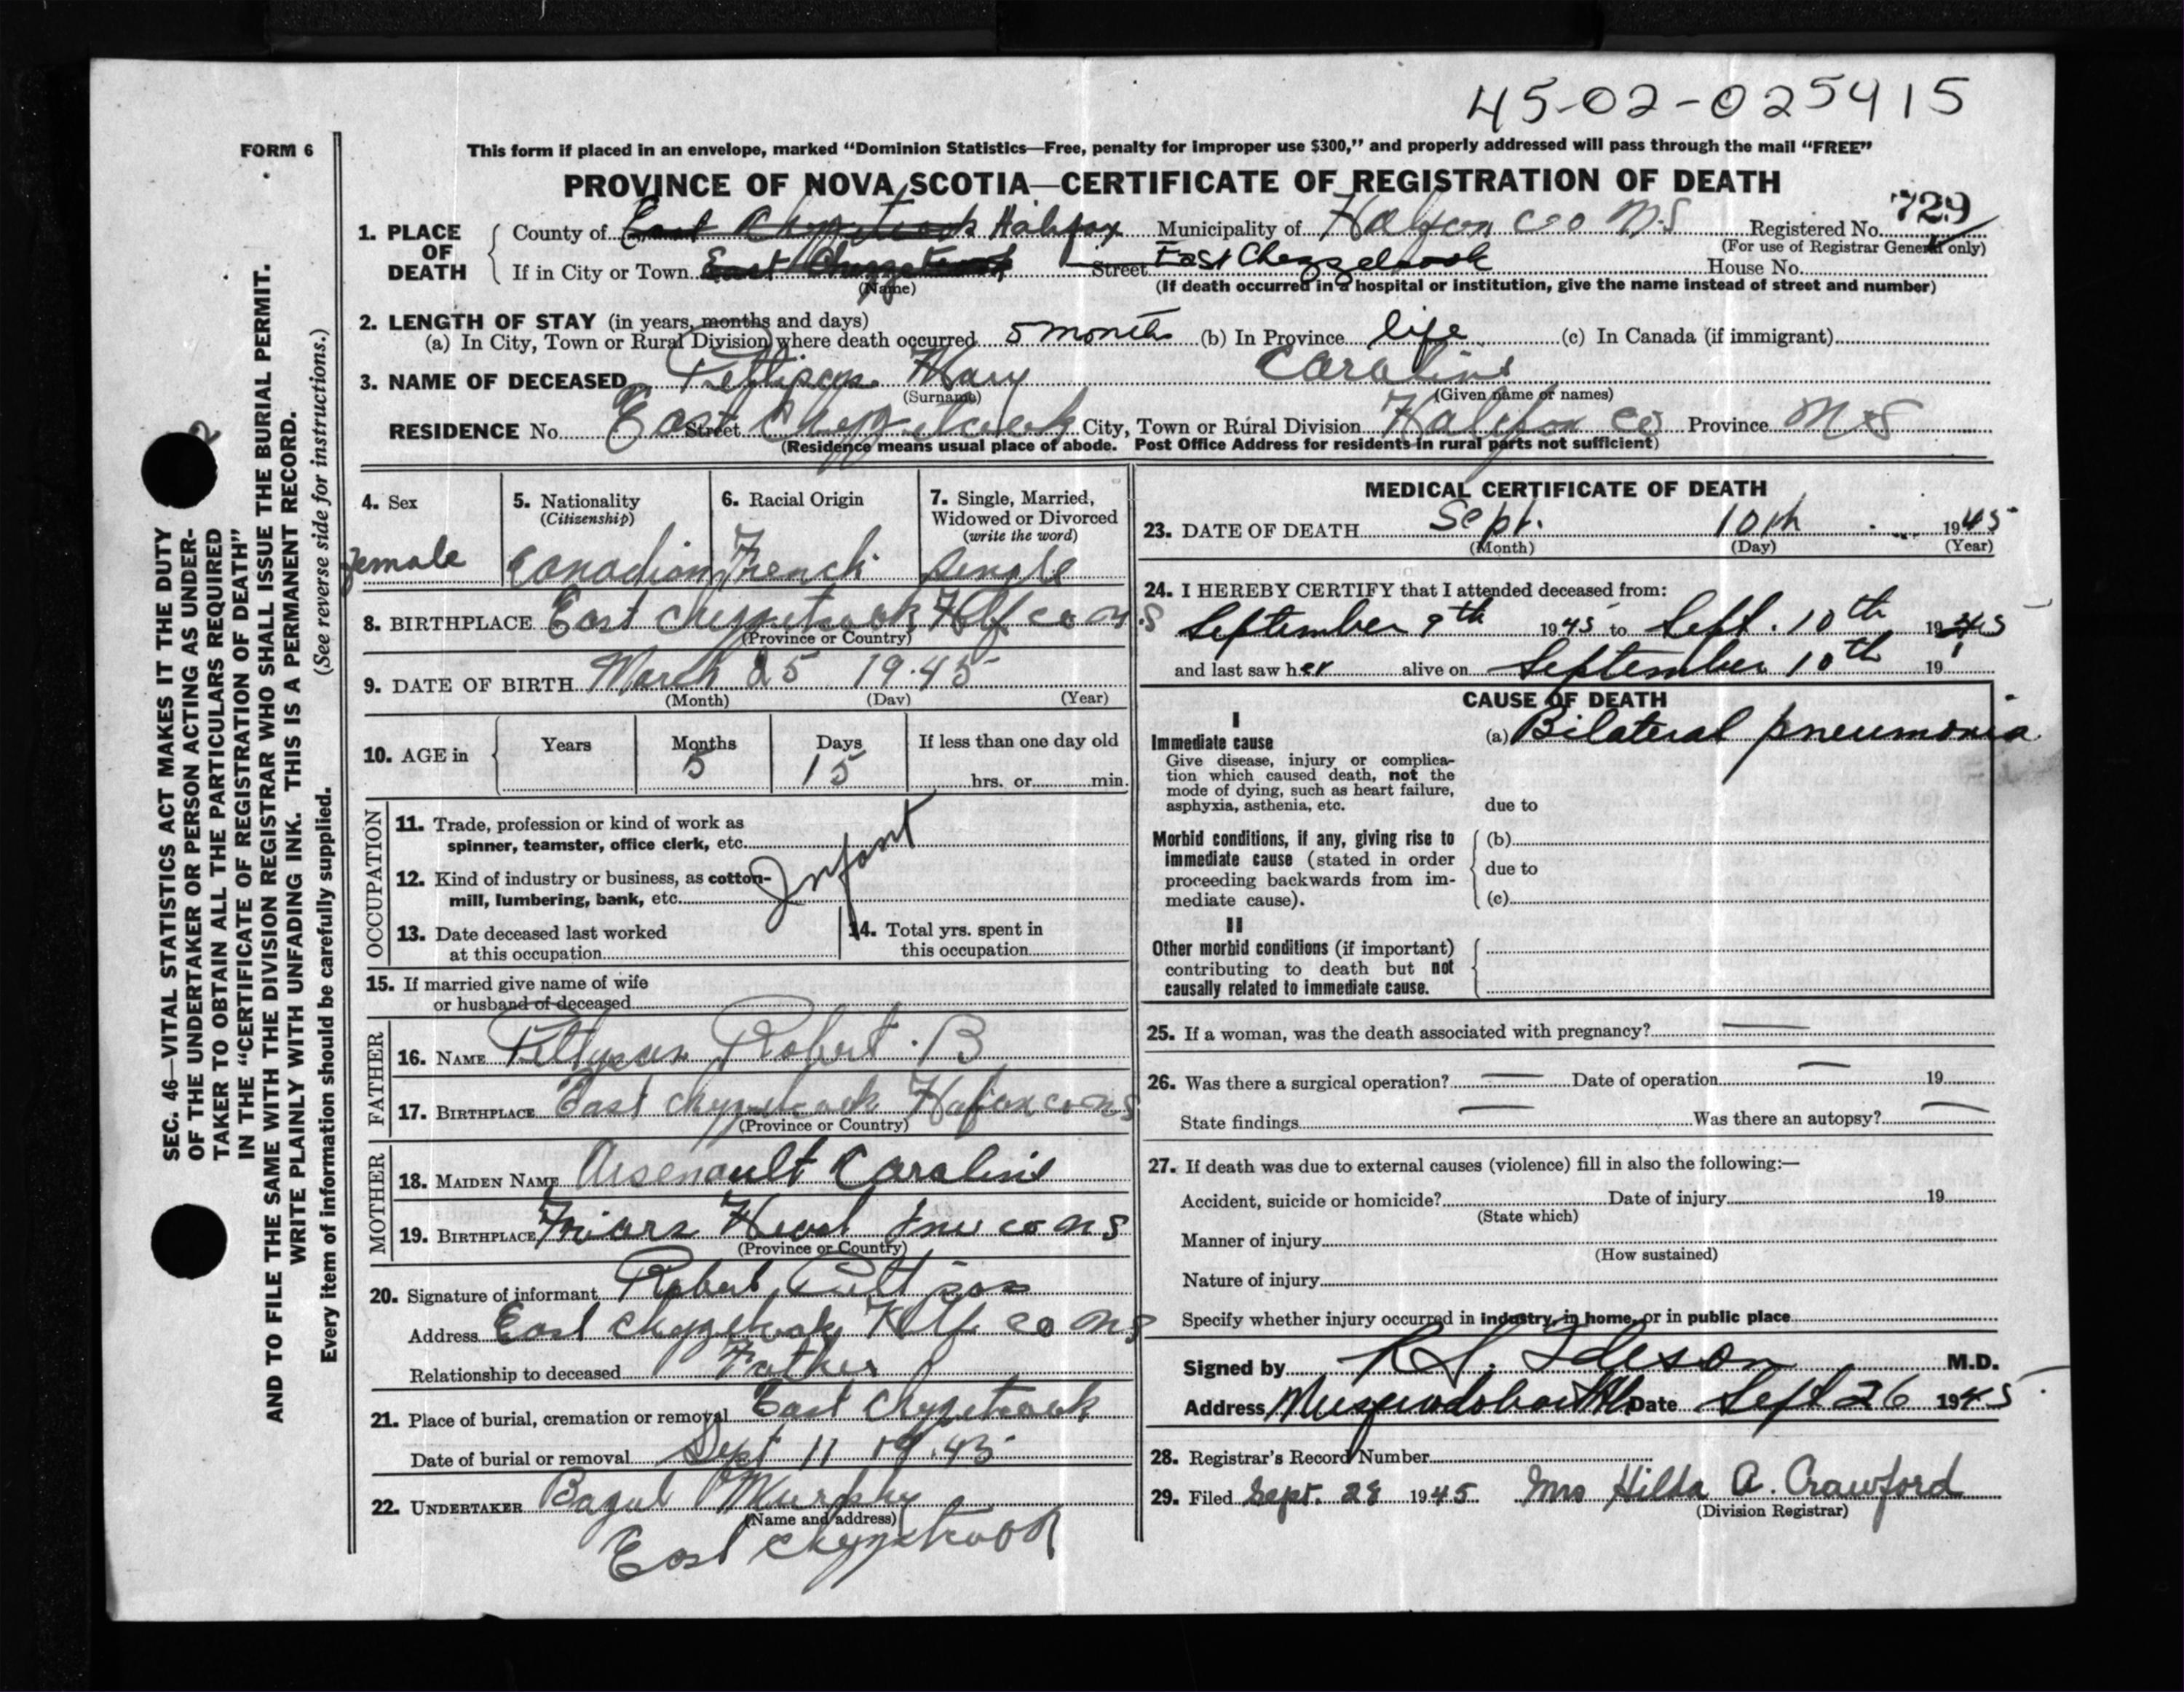 45-02-025415
FORM 6
This form if placed in an envelope, marked “Dominion Statistics—Free, penalty for improper use $300,” and properly addressed will pass through the mail “FREE”
PROVINCE OF NOVA SCOTIA—CERTIFICATE OF REGISTRATION OF DEATH
729
1. PLACE OF DEATH
County of East Chezzetcook Halifax Municipality of Halifax Co N S Registered No.
(For use of Registrar General only)
If in City or Town East Chezzetcook Street East Chezzetcook House No.
(Name) (If death occurred in a hospital or institution, give the name instead of street and number)
2. LENGTH OF STAY (in years, months and days)
(a) In City, Town or Rural Division where death occurred 5 months (b) In Province life (c) In Canada (if immigrant)
3. NAME OF DECEASED Pettipas Mary Caroline
(Surname) (Given name or names)
RESIDENCE No. East Street Chezzetcook City, Town or Rural Division Halifax Co Province N S
(Residence means usual place of abode. Post Office Address for residents in rural parts not sufficient)
4. Sex
female
5. Nationality
(Citizenship)
Canadian
6. Racial Origin
French
7. Single, Married, Widowed or Divorced
(write the word)
single
8. BIRTHPLACE East Chezzetcook Hlf co N.S
(Province or Country)
9. DATE OF BIRTH March 25 1945
(Month) (Day) (Year)
10. AGE in Years Months Days If less than one day old
5 15 hrs. or min.
OCCUPATION
11. Trade, profession or kind of work as
spinner, teamster, office clerk, etc.
Infant
12. Kind of industry or business, as cotton-
mill, lumbering, bank, etc.
13. Date deceased last worked
at this occupation
14. Total yrs. spent in
this occupation
15. If married give name of wife
or husband of deceased
FATHER
16. NAME Pettipas Robert B
17. BIRTHPLACE East Chezzetcook Halifax co N S
(Province or Country)
MOTHER
18. MAIDEN NAME Arsenault Caroline
19. BIRTHPLACE Friars Head Inv co N S
(Province or Country)
20. Signature of informant Robert Pettipas
Address East Chezzetcook Hlf co N S
Relationship to deceased Father
21. Place of burial, cremation or removal East Chezzetcook
Date of burial or removal Sept 11 1945
22. UNDERTAKER Bazul Murphy
(Name and address)
East Chezzetcook
MEDICAL CERTIFICATE OF DEATH
23. DATE OF DEATH Sept. 10th 1945
(Month) (Day) (Year)
24. I HEREBY CERTIFY that I attended deceased from:
September 9th 1945 to Sept. 10th 1945
and last saw her alive on September 10th 19
CAUSE OF DEATH
I
Immediate cause
Give disease, injury or complica-
tion which caused death, not the
mode of dying, such as heart failure,
asphyxia, asthenia, etc.
(a) Bilateral pneumonia
due to
Morbid conditions, if any, giving rise to
immediate cause (stated in order
proceeding backwards from im-
mediate cause).
(b)
due to
(c)
II
Other morbid conditions (if important)
contributing to death but not
causally related to immediate cause.
25. If a woman, was the death associated with pregnancy? —
26. Was there a surgical operation? — Date of operation — 19
State findings — Was there an autopsy? —
27. If death was due to external causes (violence) fill in also the following:—
Accident, suicide or homicide? Date of injury 19
(State which)
Manner of injury
(How sustained)
Nature of injury
Specify whether injury occurred in industry, in home, or in public place
Signed by M.D.
Address Date Sept 26 1945
28. Registrar's Record Number
29. Filed Sept. 28 1945 Mrs Hilda A. Crawford
(Division Registrar)
SEC. 46—VITAL STATISTICS ACT MAKES IT THE DUTY
OF THE UNDERTAKER OR PERSON ACTING AS UNDER-
TAKER TO OBTAIN ALL THE PARTICULARS REQUIRED
IN THE “CERTIFICATE OF REGISTRATION OF DEATH”
AND TO FILE THE SAME WITH THE DIVISION REGISTRAR WHO SHALL ISSUE THE BURIAL PERMIT.
WRITE PLAINLY WITH UNFADING INK. THIS IS A PERMANENT RECORD.
(See reverse side for instructions.)
Every item of information should be carefully supplied.